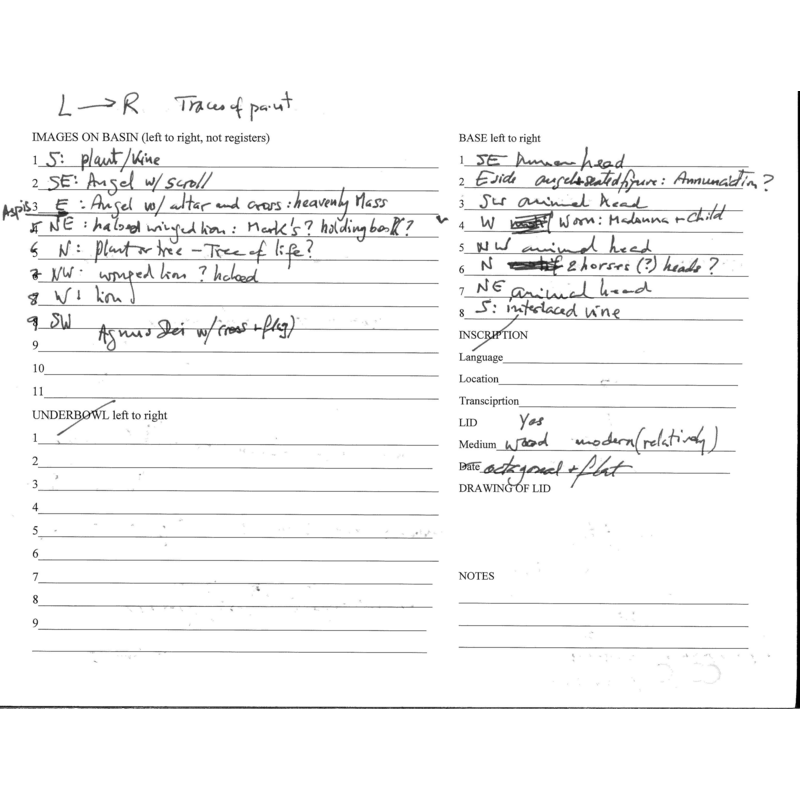 L → R Traces of paint
IMAGES ON BASIN (left to right, not registers)
1 S: plant/vine
2 SE: Angel w/ scroll
Aspis 3 E: Angel w/ altar and cross: heavenly Mass
NE: haloed winged lion: Mark's? holding book?
5 N: plant or tree – Tree of life?
7 NW: winged lion? haloed
8 W: lion
9 SW Agnus Dei w/ cross + flag
9
10
11
UNDERBOWL left to right
1
2
3
4
5
6
7
8
9
BASE left to right
1 SE human head
2 E side angel + seated figure: Annunciation?
3 SW animal head
4 W Worn: Madonna + Child
5 NW animal head
6 N 2 horses (?) heads?
7 NE animal head
8 S: interlaced vine
INSCRIPTION
Language
Location
Transciprtion
LID Yes
Medium wood modern (relatively)
Date octagonal + flat
DRAWING OF LID
NOTES